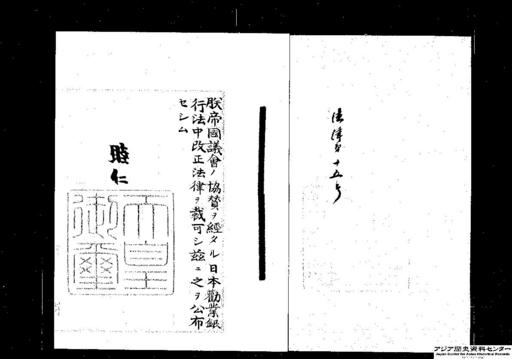 法律第十五号
朕帝國議會ノ協賛ヲ經タル日本勸業銀
行法中改正法律ヲ裁可シ茲ニ之ヲ公布
セシム
睦仁
天皇御璽
アジア歴史資料センター
Japan Center for Asian Historical Records